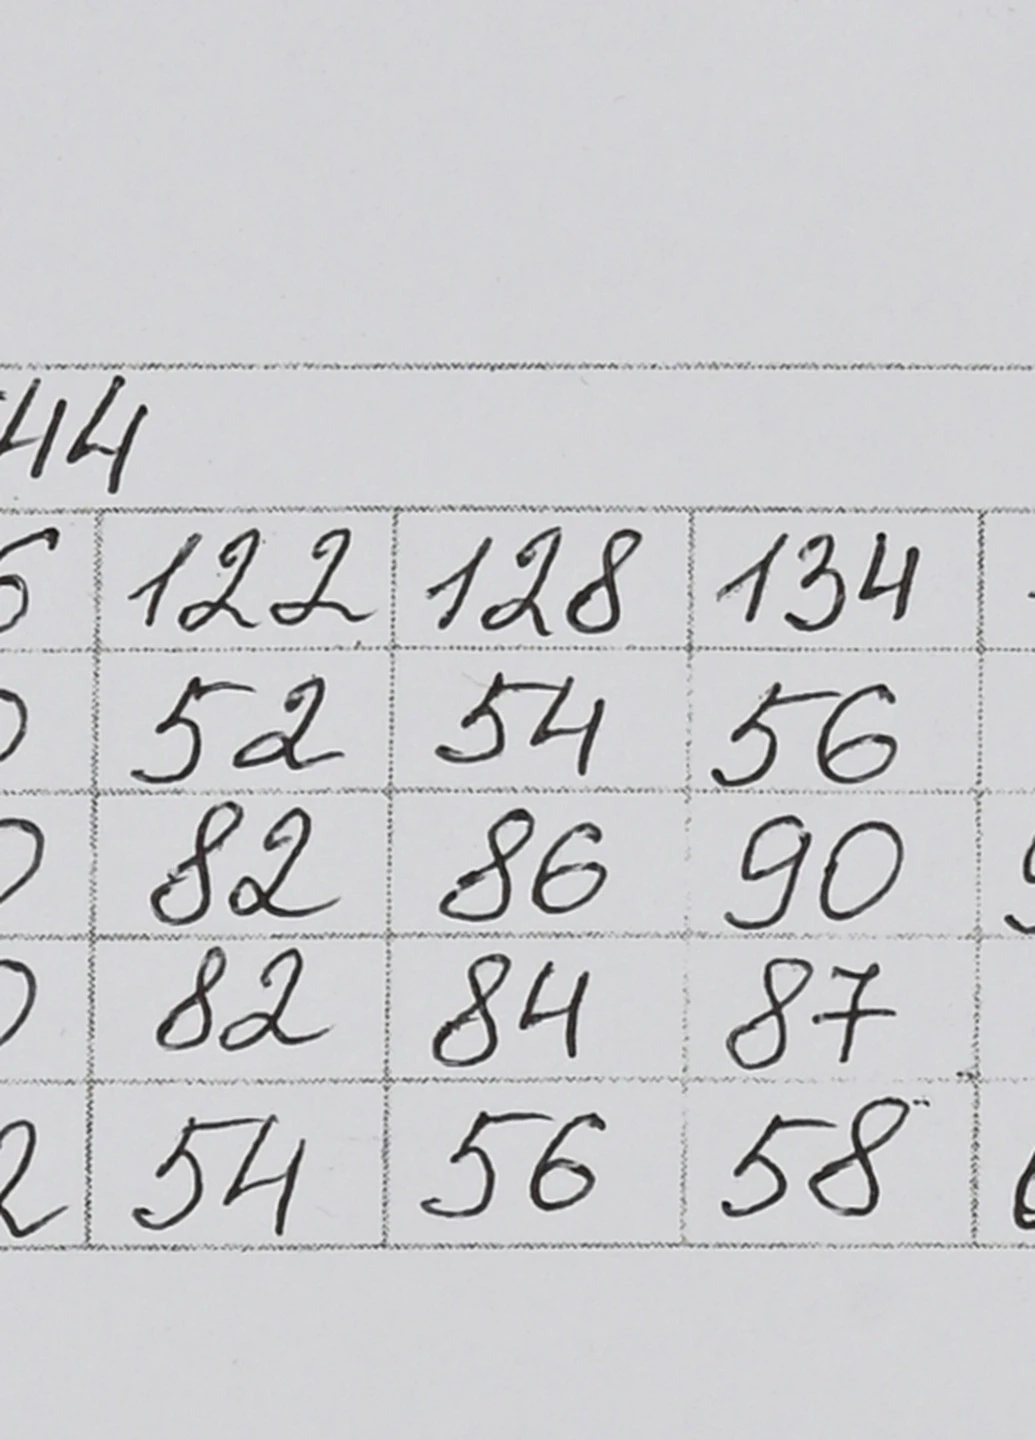 44
122 128 134
52 54 56
82 86 90
82 84 87
54 56 58